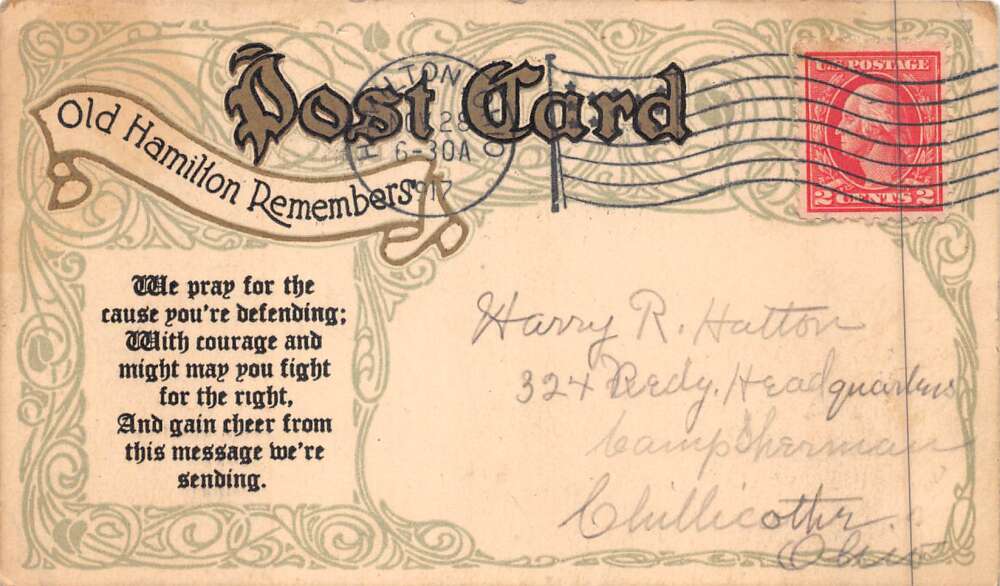 Post Card
Old Hamilton Remembers
We pray for the
cause you're defending;
With courage and
might may you fight
for the right,
And gain cheer from
this message we're
sending.
28
6-30A
1917
O
U.S. POSTAGE
2 CENTS 2
Harry R. Hatton
324 Headquarters
Camp Sherman
Chillicothe.
Ohio